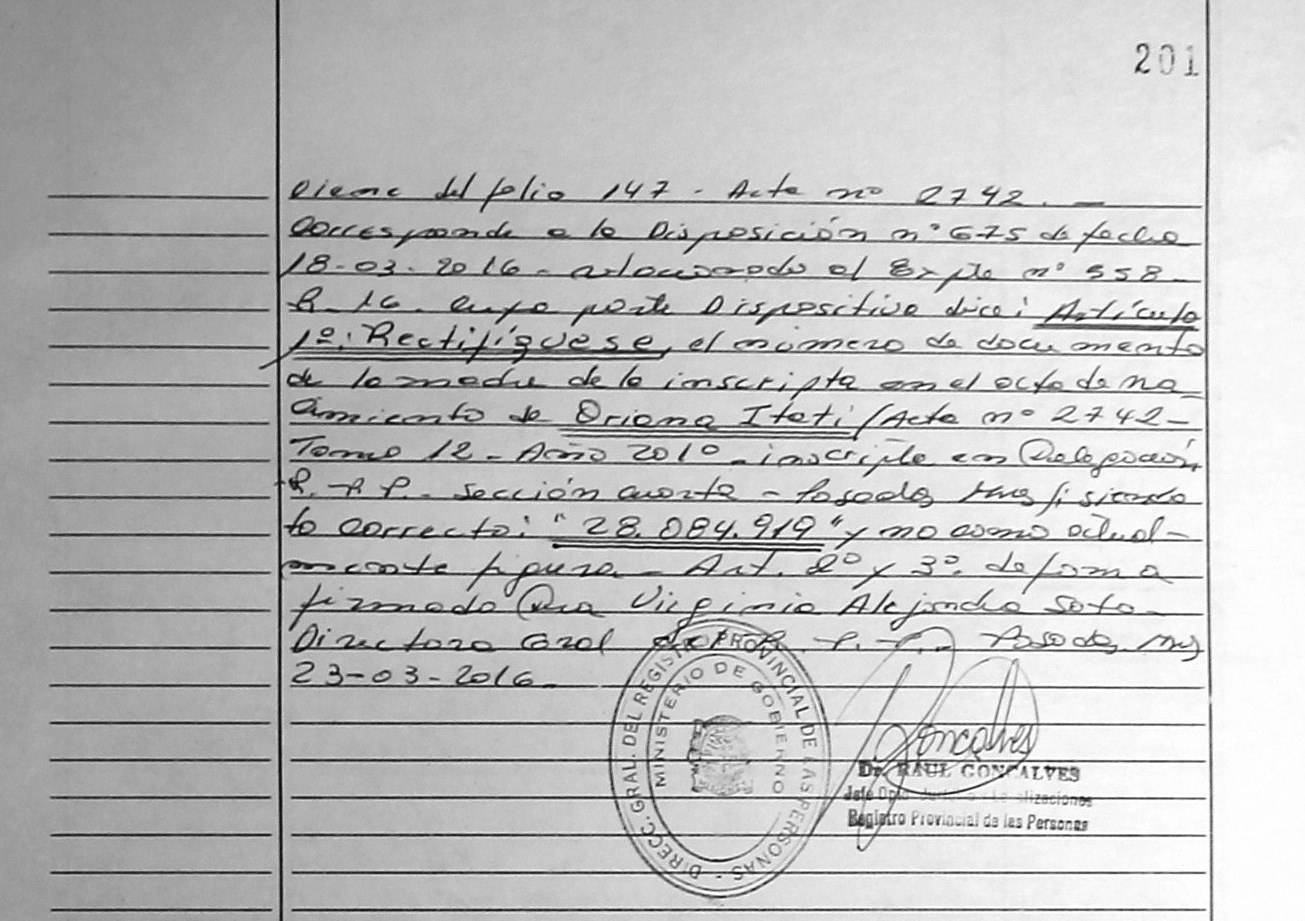 201
Viene del folio 147 - Acta nº 2742. -
Corresponde a la Disposición nº 675 de fecha
18-03-2016 - el Expte nº 558 -
R - 16 - cuya parte Dispositiva dice: Artículo
1º: Rectifíquese, el número de documento
de la madre de la inscripta en el acta de na-
cimiento de Oriana Itatí (Acta nº 2742 -
Tomo 12 - Año 2010 - inscripta en Delegación
R. - P. P. - sección cuarta - Posadas Mns) siendo
lo correcto: "28.084.919" y no como actual-
mente figura - Art. 2º y 3º. de forma
firmado Dra Virginia Alejandra Soto -
Directora Gral del R. - P. - P. - Posadas, Mns
23-03-2016 -
DIRECC. GRAL. DEL REGISTRO PROVINCIAL DE LAS PERSONAS -
MINISTERIO DE GOBIERNO
Goncalves
Dr. RAUL GONCALVES
Jefe Dpto.
Registro Provincial de las Personas